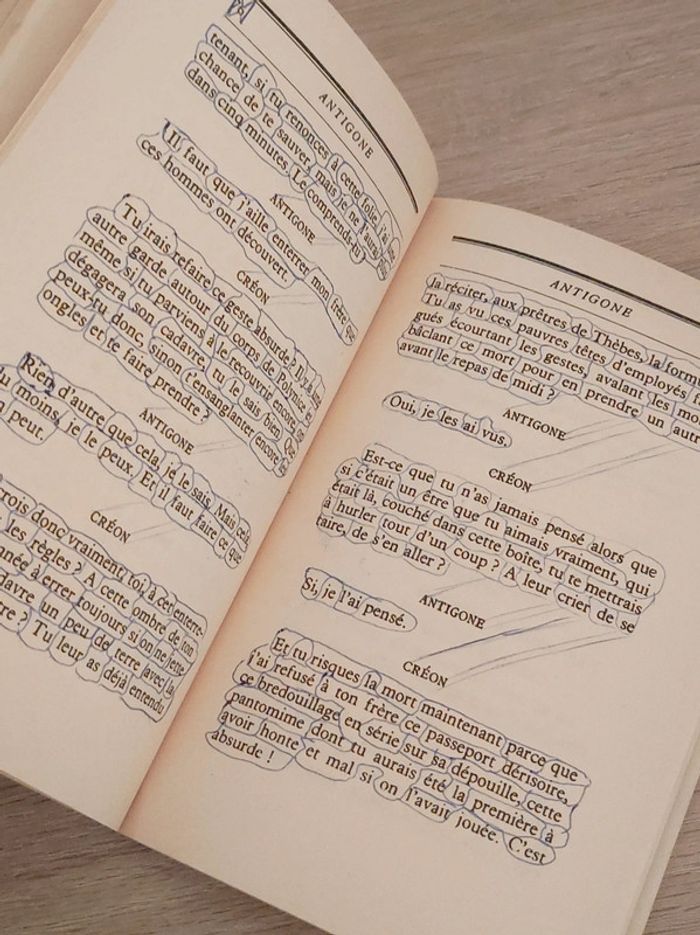 ANTIGONE
tenant, si tu renonces à cette folie, j'ai une
chance de te sauver, mais je ne l'aurai
dans cinq minutes. Le comprends-tu
ANTIGONE
Il faut que j'aille enterrer mon frère que
ces hommes ont découvert.
CRÉON
Tu irais refaire ce geste absurde? Il y a une
autre garde autour du corps de Polynice et
même si tu parviens à le recouvrir encore, on
dégagera son cadavre, tu le sais bien. Que
peux-tu donc, sinon t'ensanglanter encore les
ongles et te faire prendre ?
ANTIGONE
Rien d'autre que cela, je le sais. Mais cela,
du moins, je le peux. Et il faut faire ce que
peut.
CRÉON
crois donc vraiment, toi, à cet enterre-
les règles? A cette ombre de ton
à errer toujours si on ne jette
un peu de terre avec la
Tu leur as déjà entendu
ANTIGONE
la réciter, aux prêtres de Thèbes, la
Tu as vu ces pauvres têtes d'employés
gués écourtant les gestes, avalant les
bâclant ce mort pour en prendre un
avant le repas de midi ?
ANTIGONE
Oui, je les ai vus.
CRÉON
Est-ce que tu n'as jamais pensé alors que
si c'était un être que tu aimais vraiment, qui
était là, couché dans cette boîte, tu te mettrais
à hurler tout d'un coup ? A leur crier de se
taire, de s'en aller ?
ANTIGONE
Si, je l'ai pensé.
CRÉON
Et tu risques la mort maintenant parce que
j'ai refusé à ton frère ce passeport dérisoire,
ce bredouillage en série sur sa dépouille, cette
pantomime dont tu aurais été la première à
avoir honte et mal si on l'avait jouée. C'est
absurde !